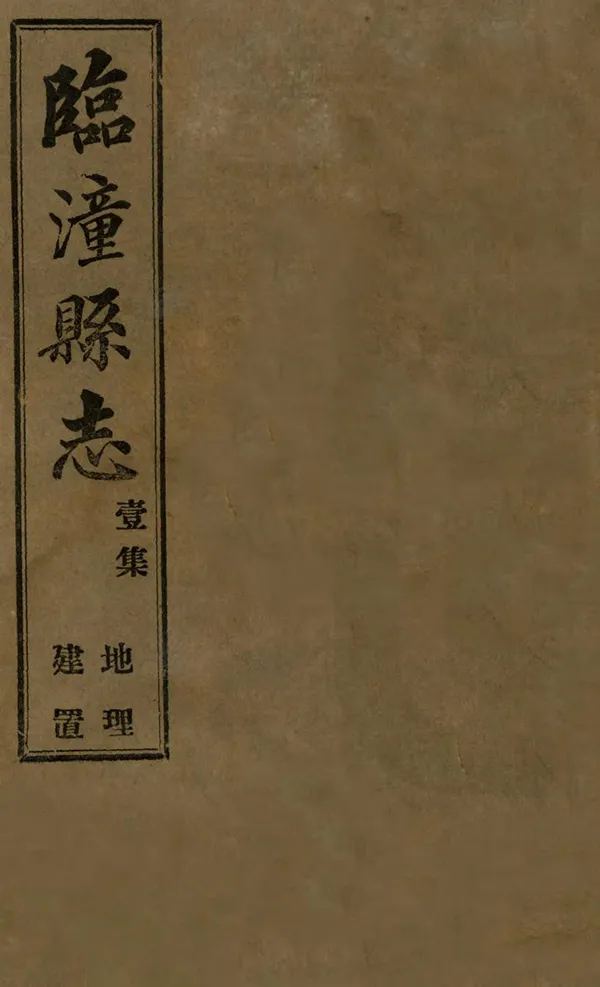 臨潼縣志
壹集
地理
建置